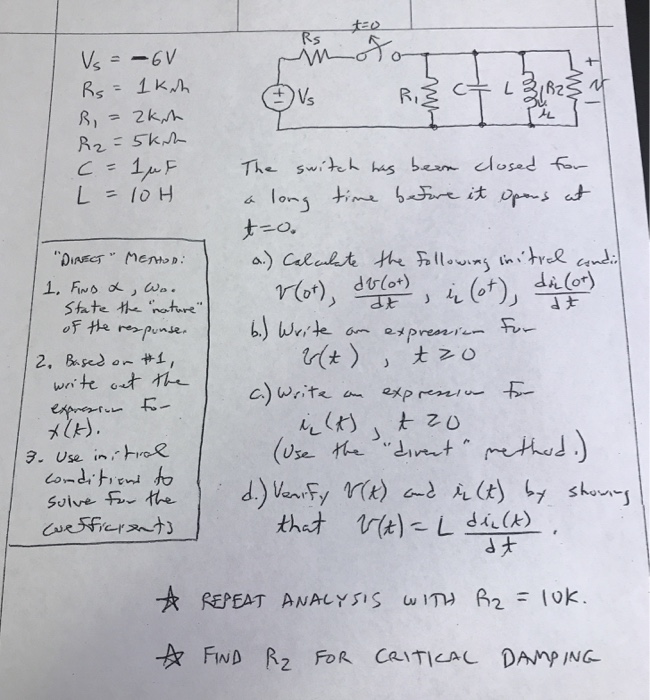 t=0
Rs
Vs = -6V
Rs = 1 kΩ
R1 = 2kΩ
R2 = 5kΩ
C = 1μF
L = 10 H
Vs
R1
C
L
R2
+
v
-
iL
The switch has been closed for
a long time before it opens at
t=0.
a.) Calculate the following initial condi
v(0+), dv(0+)/dt, iL(0+), diL(0+)/dt
b.) Write an expression for
v(t), t≥0
c.) Write an expression for
iL(t), t≥0
(Use the "direct" method.)
d.) Verify v(t) and iL(t) by showing
that v(t) = L diL(t)/dt.
"DIRECT" METHOD:
1. FIND α, ω0.
State the "nature"
of the response.
2. Based on #1,
write out the
expression for
x(t).
3. Use initial
conditions to
solve for the
coefficients
☆ REPEAT ANALYSIS WITH R2 = 10K.
☆ FIND R2 FOR CRITICAL DAMPING